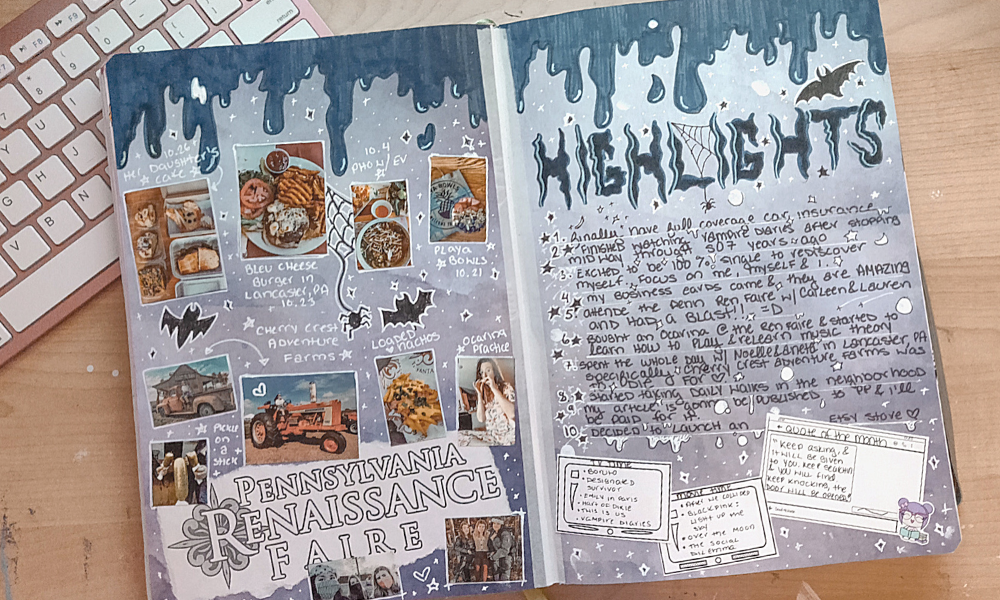 10.26
Her Daughter's
Cafe
10.4
PHO W/ EV
BLEU CHEESE
BURGER IN
LANCASTER, PA
10.23
PLAYA
BOWLS
10.21
CHERRY CREST
ADVENTURE
FARMS
LOADED
NACHOS
OCARINA
PRACTICE
PICKLE
ON
A
STICK
PENNSYLVANIA
RENAISSANCE
FAIRE
HIGHLIGHTS
1. Finally have full coverage car insurance
2. FINISHED WATCHING VAMPIRE DIARIES AFTER STOPPING
MIDWAY THROUGH 807 YEARS AGO
3. EXCITED TO BE 100% SINGLE TO REDISCOVER
MYSELF. FOCUS ON ME, MYSELF & I.
4. MY BUSINESS CARDS CAME & THEY ARE AMAZING
5. ATTENDE THE PENN REN FAIRE W/ CAILEEN & LAUREN
AND HAD A BLAST!! =D
6. BOUGHT AN OCARINA @ THE REN FAIRE & STARTED TO
LEARN HOW TO PLAY & RELEARN MUSIC THEORY
7. SPENT THE WHOLE DAY W/ NOELLE & IN LANCASTER, PA
SPECIFICALLY CHERRY CREST ADVENTURE FARMS WAS
TO DIE FOR
8. STARTED TAKING DAILY WALKS IN THE NEIGHBORHOOD
9. MY ARTICLE IS GONNA BE PUBLISHED TO & I'LL
BE PAID FOR IT
10. DECIDED TO LAUNCH AN ETSY STORE
TV TIME
BORUTO
DESIGNATED
SURVIVOR
EMILY IN PARIS
HART OF DIXIE
THIS IS US
VAMPIRE DIARIES
MOVIE TIME
AFTER WE COLLIDED
BLACKPINK:
LIGHT UP THE
SKY
OVER THE MOON
THE SOCIAL
DILEMMA
QUOTE OF THE MONTH
"KEEP ASKING, &
IT WILL BE GIVEN
TO YOU. KEEP SEARCHING
& YOU WILL FIND.
KEEP KNOCKING, THE
DOOR WILL BE OPENED"
return
F8
F9